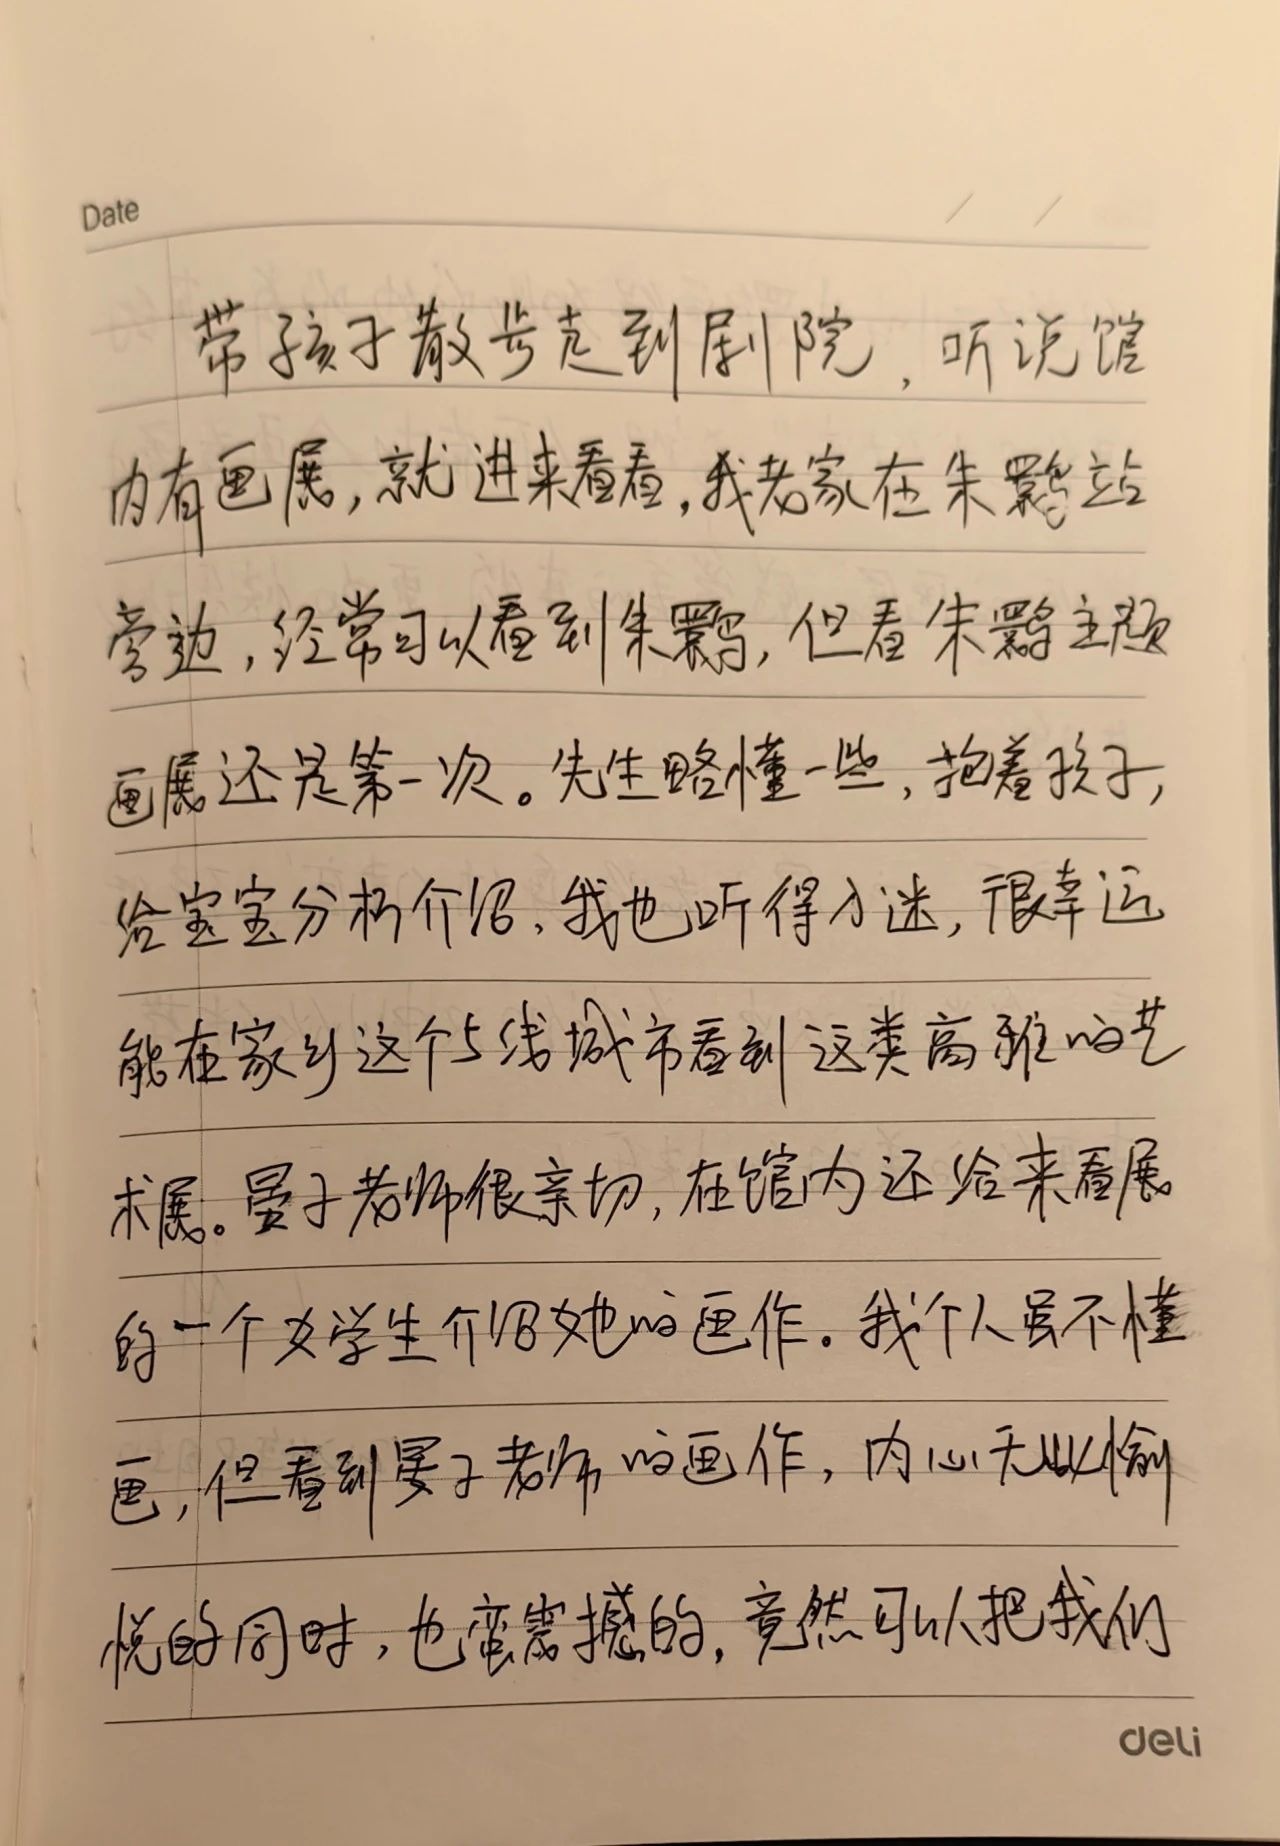 Date / /
带孩子散步走到剧院，听说馆
内有画展，就进来看看，我老家在朱鹮站
旁边，经常可以看到朱鹮，但看朱鹮主题
画展还是第一次。先生略懂一些，抱着孩子，
给宝宝分析介绍，我也听得入迷，很幸运
能在家乡这个5线城市看到这类高雅的艺
术展。晏子老师很亲切，在馆内还给来看展
的一个女学生介绍她的画作。我个人虽不懂
画，但看到晏子老师的画作，内心无比愉
悦的同时，也蛮震撼的，竟然可以把我们
deli